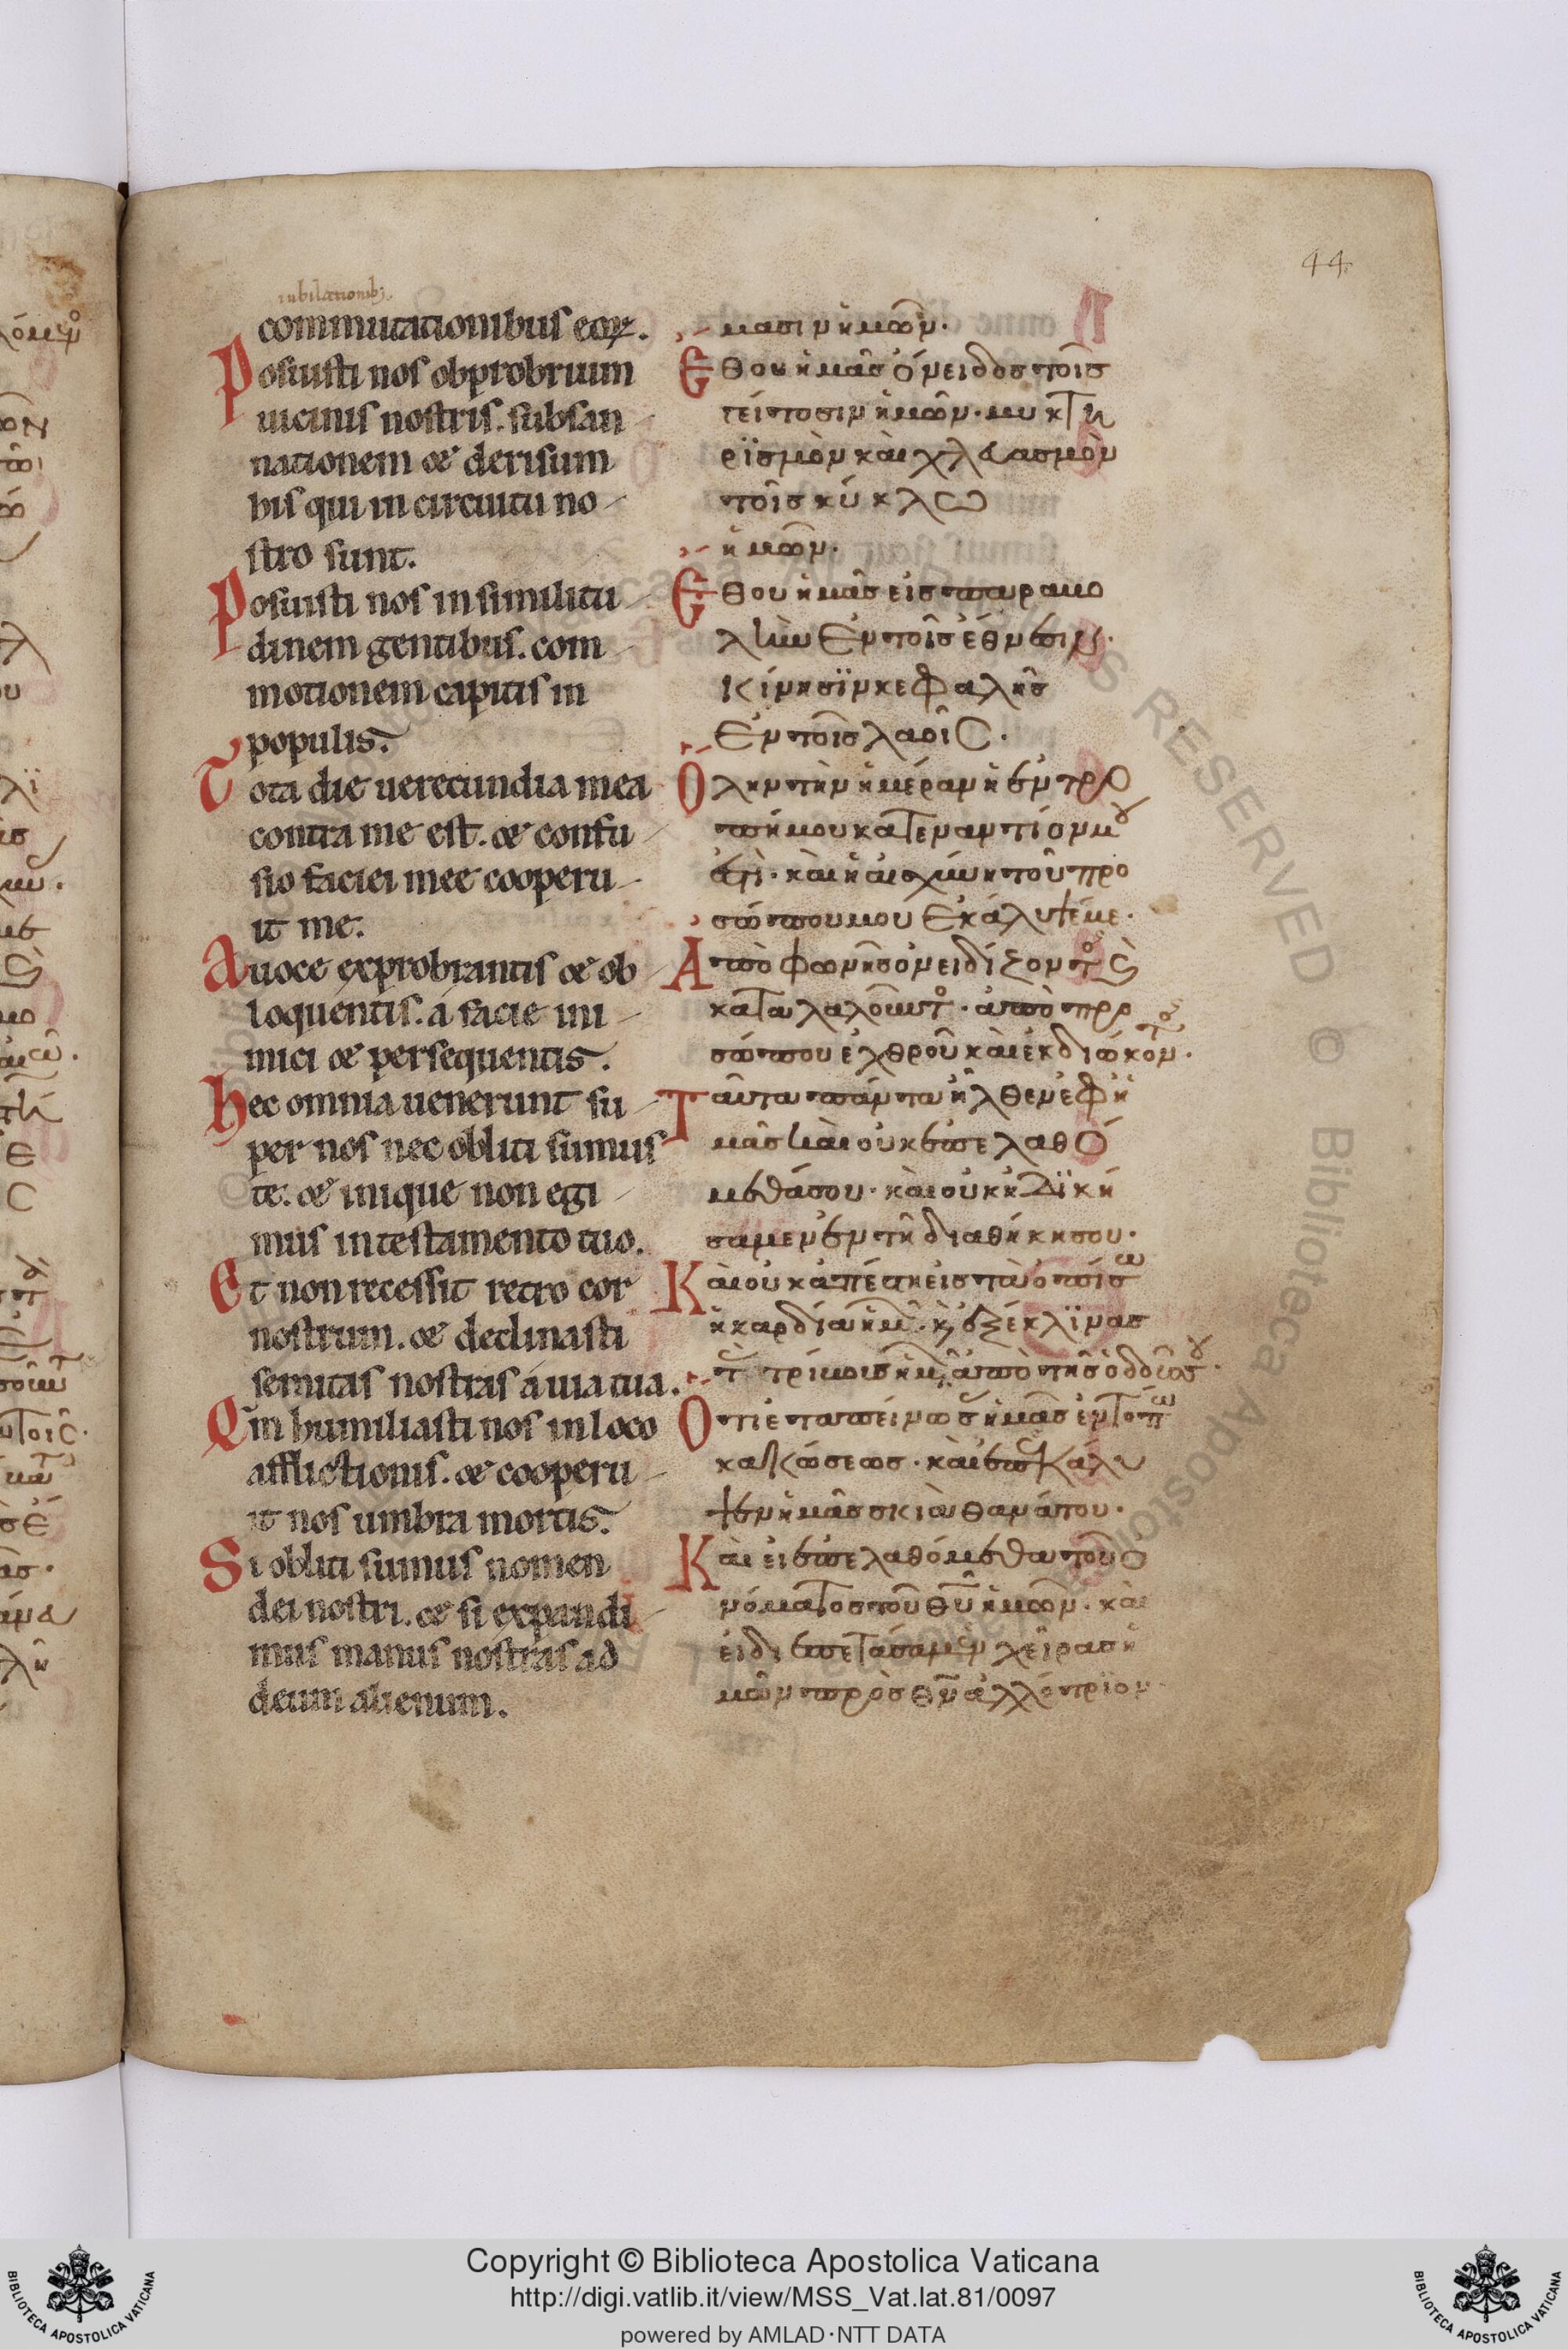 44
iubilationib;
commutationibus eoꝝ.
Posuisti nos obprobrium
uicinis nostris. subsan
nationem & derisum
his qui in circuitu no
stro sunt.
Posuisti nos in similitu
dinem gentibus. com
motionem capitis in
populis.
Tota die uerecundia mea
contra me est. & confu
sio faciei mee cooperu
it me.
A uoce exprobrantis & ob
loquentis. a facie ini
mici & persequentis.
Hec omnia uenerunt su
per nos nec obliti sumus
te. & inique non egi
mus in testamento tuo.
Et non recessit retro cor
nostrum. & declinasti
semitas nostras a uia tua.
Qm humiliasti nos in loco
afflictionis. & cooperu
it nos umbra mortis.
Si obliti sumus nomen
dei nostri. & si expandi
mus manus nostras ad
deum alienum.
μασιν ἡμῶν.
Ἔθου ἡμᾶς ὄνειδος τοῖς
γείτοσιν ἡμῶν. μυκτη
ρϊσμὸν καὶ χλευασμὸν
τοῖς κύκλω
ἡμῶν.
Ἔθου ἡμᾶς εἰς παραβο
λὴν ἐν τοῖς ἔθνεσιν.
κίνησϊν κεφαλῆς
ἐν τοῖς λαοῖς.
Ὅλην τὴν ἡμέραν ἡ ἐντρο
πή μου κατεναντίον μου
ἐστὶ. καὶ ἡ αἰσχύνη τοῦ προ
σώπου μου ἐκάλυψέ με.
Ἀπὸ φωνῆς ὀνειδίζοντος
καταλαλοῦντος. ἀπὸ προ
σώπου ἐχθροῦ καὶ ἐκδιώκοντος.
Ταῦτα πάντα ἦλθεν ἐφ ἡ
μᾶς καὶ οὐκ ἐπελαθό
μεθά σου. καὶ οὐκ ἠδϊκή
σαμεν ἐν τῆ διαθήκη σου.
Καὶ οὐκ ἀπέστη εἰς τὰ ὀπίσω
ἡ καρδία ἡμῶν. καὶ ἐξέκλϊνας
τὰς τρίβους ἡμῶν ἀπὸ τῆς ὁδοῦ σου.
Ὅτι ἐταπείνωσας ἡμᾶς ἐν τόπω
κακώσεως. καὶ ἐπεκάλυ
ψεν ἡμᾶς σκιὰ θανάτου.
Καὶ εἰ ἐπελαθόμεθα τοῦ ὀ
νόματος τοῦ θῦ ἡμῶν. καὶ
εἰ διεπετάσαμεν χεῖρας ἡ
μῶν πρὸς θν ἀλλότρϊον
Copyright © Biblioteca Apostolica Vaticana
http://digi.vatlib.it/view/MSS_Vat.lat.81/0097
powered by AMLAD·NTT DATA
BIBLIOTECA APOSTOLICA VATICANA
BIBLIOTECA APOSTOLICA VATICANA